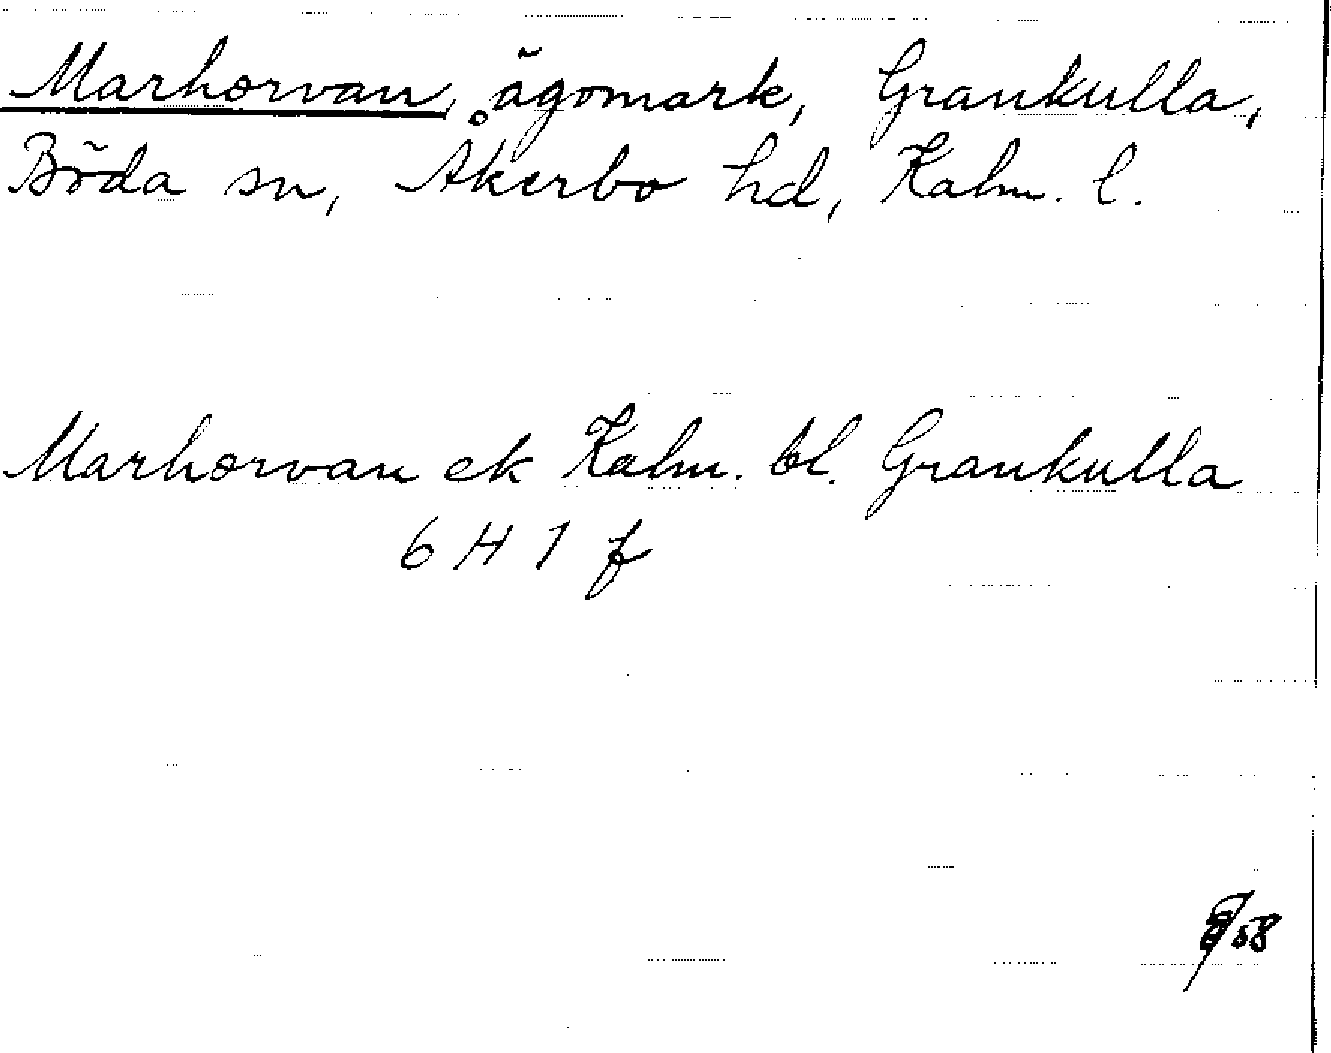 Marhorvan, ägomark, Grankulla,
Böda sn, Åkerbo hd, Kalm. l.
Marhorvan ek Kalm. bl. Grankulla
6 H 1 f
58